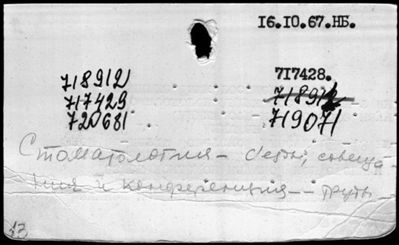 16.10.67.НБ.
718912 717428.
717429 718912
720681 719071
Стоматология - съезды, совеща-
ния и конференция -- труды
13